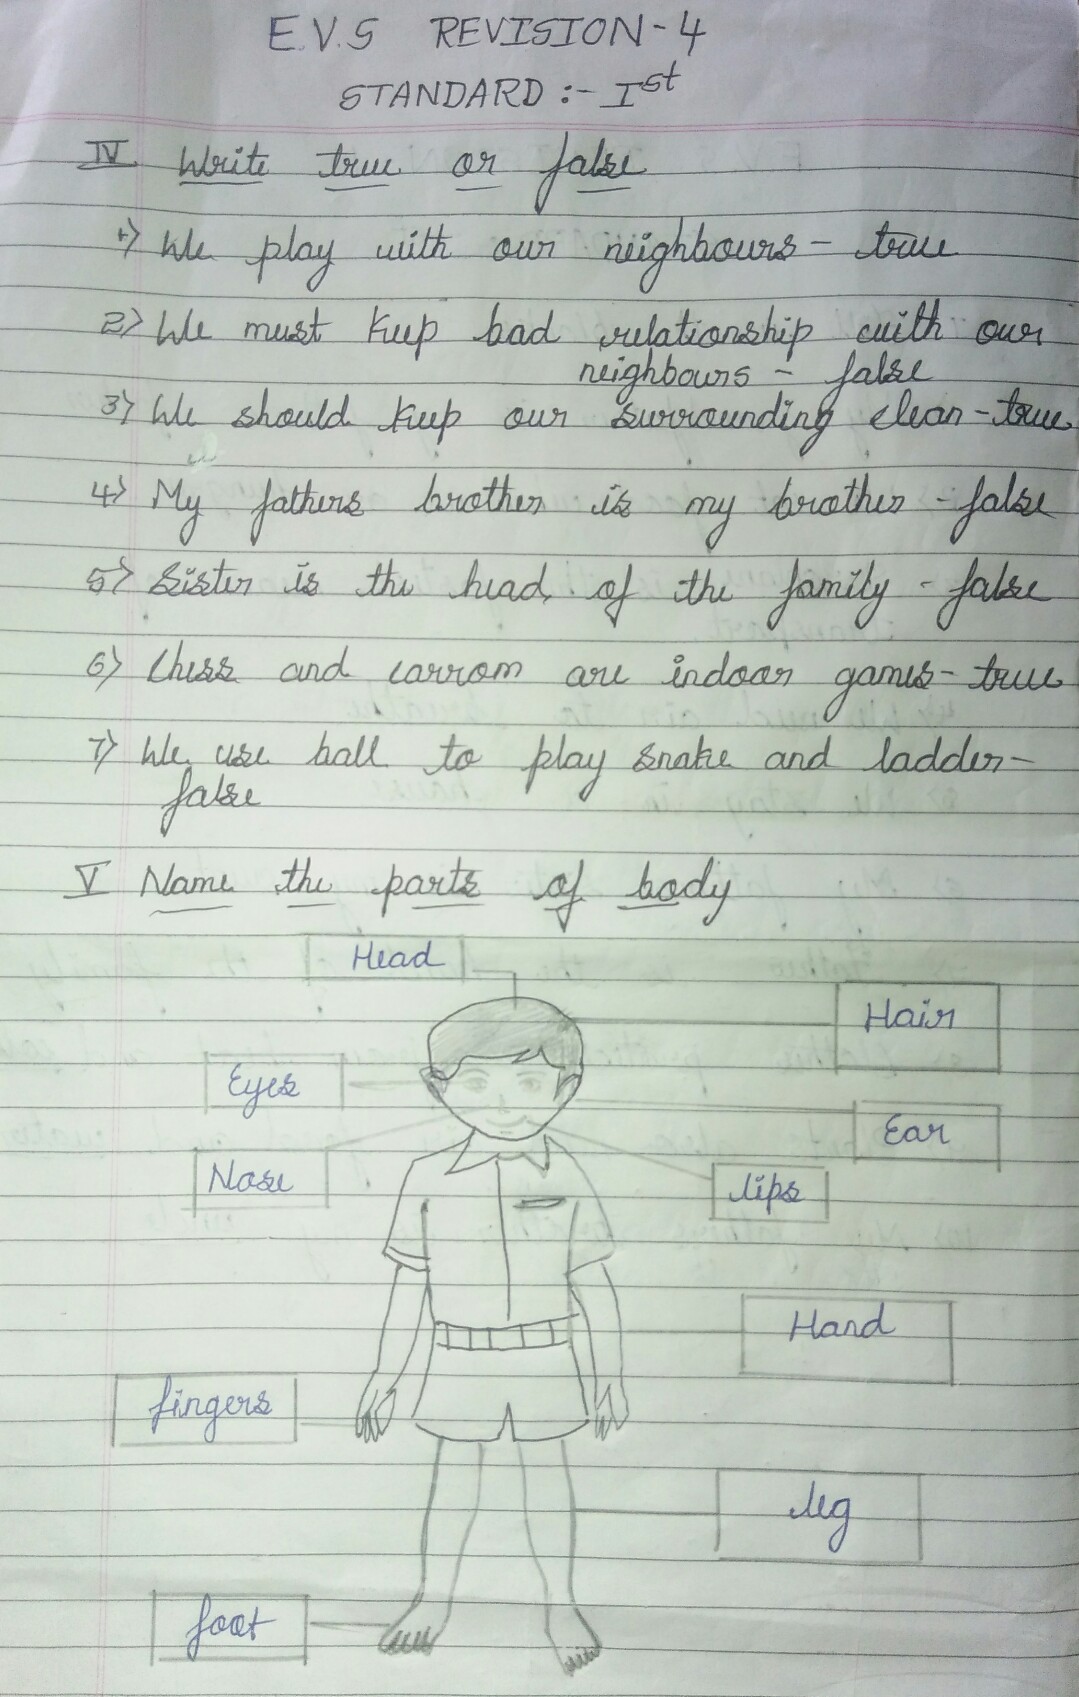 E.V.S REVISION-4
STANDARD :- Ist
IV Write true or false
1) We play with our neighbours - true
2) We must keep bad relationship with our
neighbours - false
3) We should keep our surrounding clean - true
4) My fathers brother is my brother - false
5) Sister is the head of the family - false
6) Chess and carrom are indoor games - true
7) We use ball to play snake and ladder -
false
V Name the parts of body
Head
Hair
Eyes
Ear
Nose
lips
Hand
fingers
leg
foot